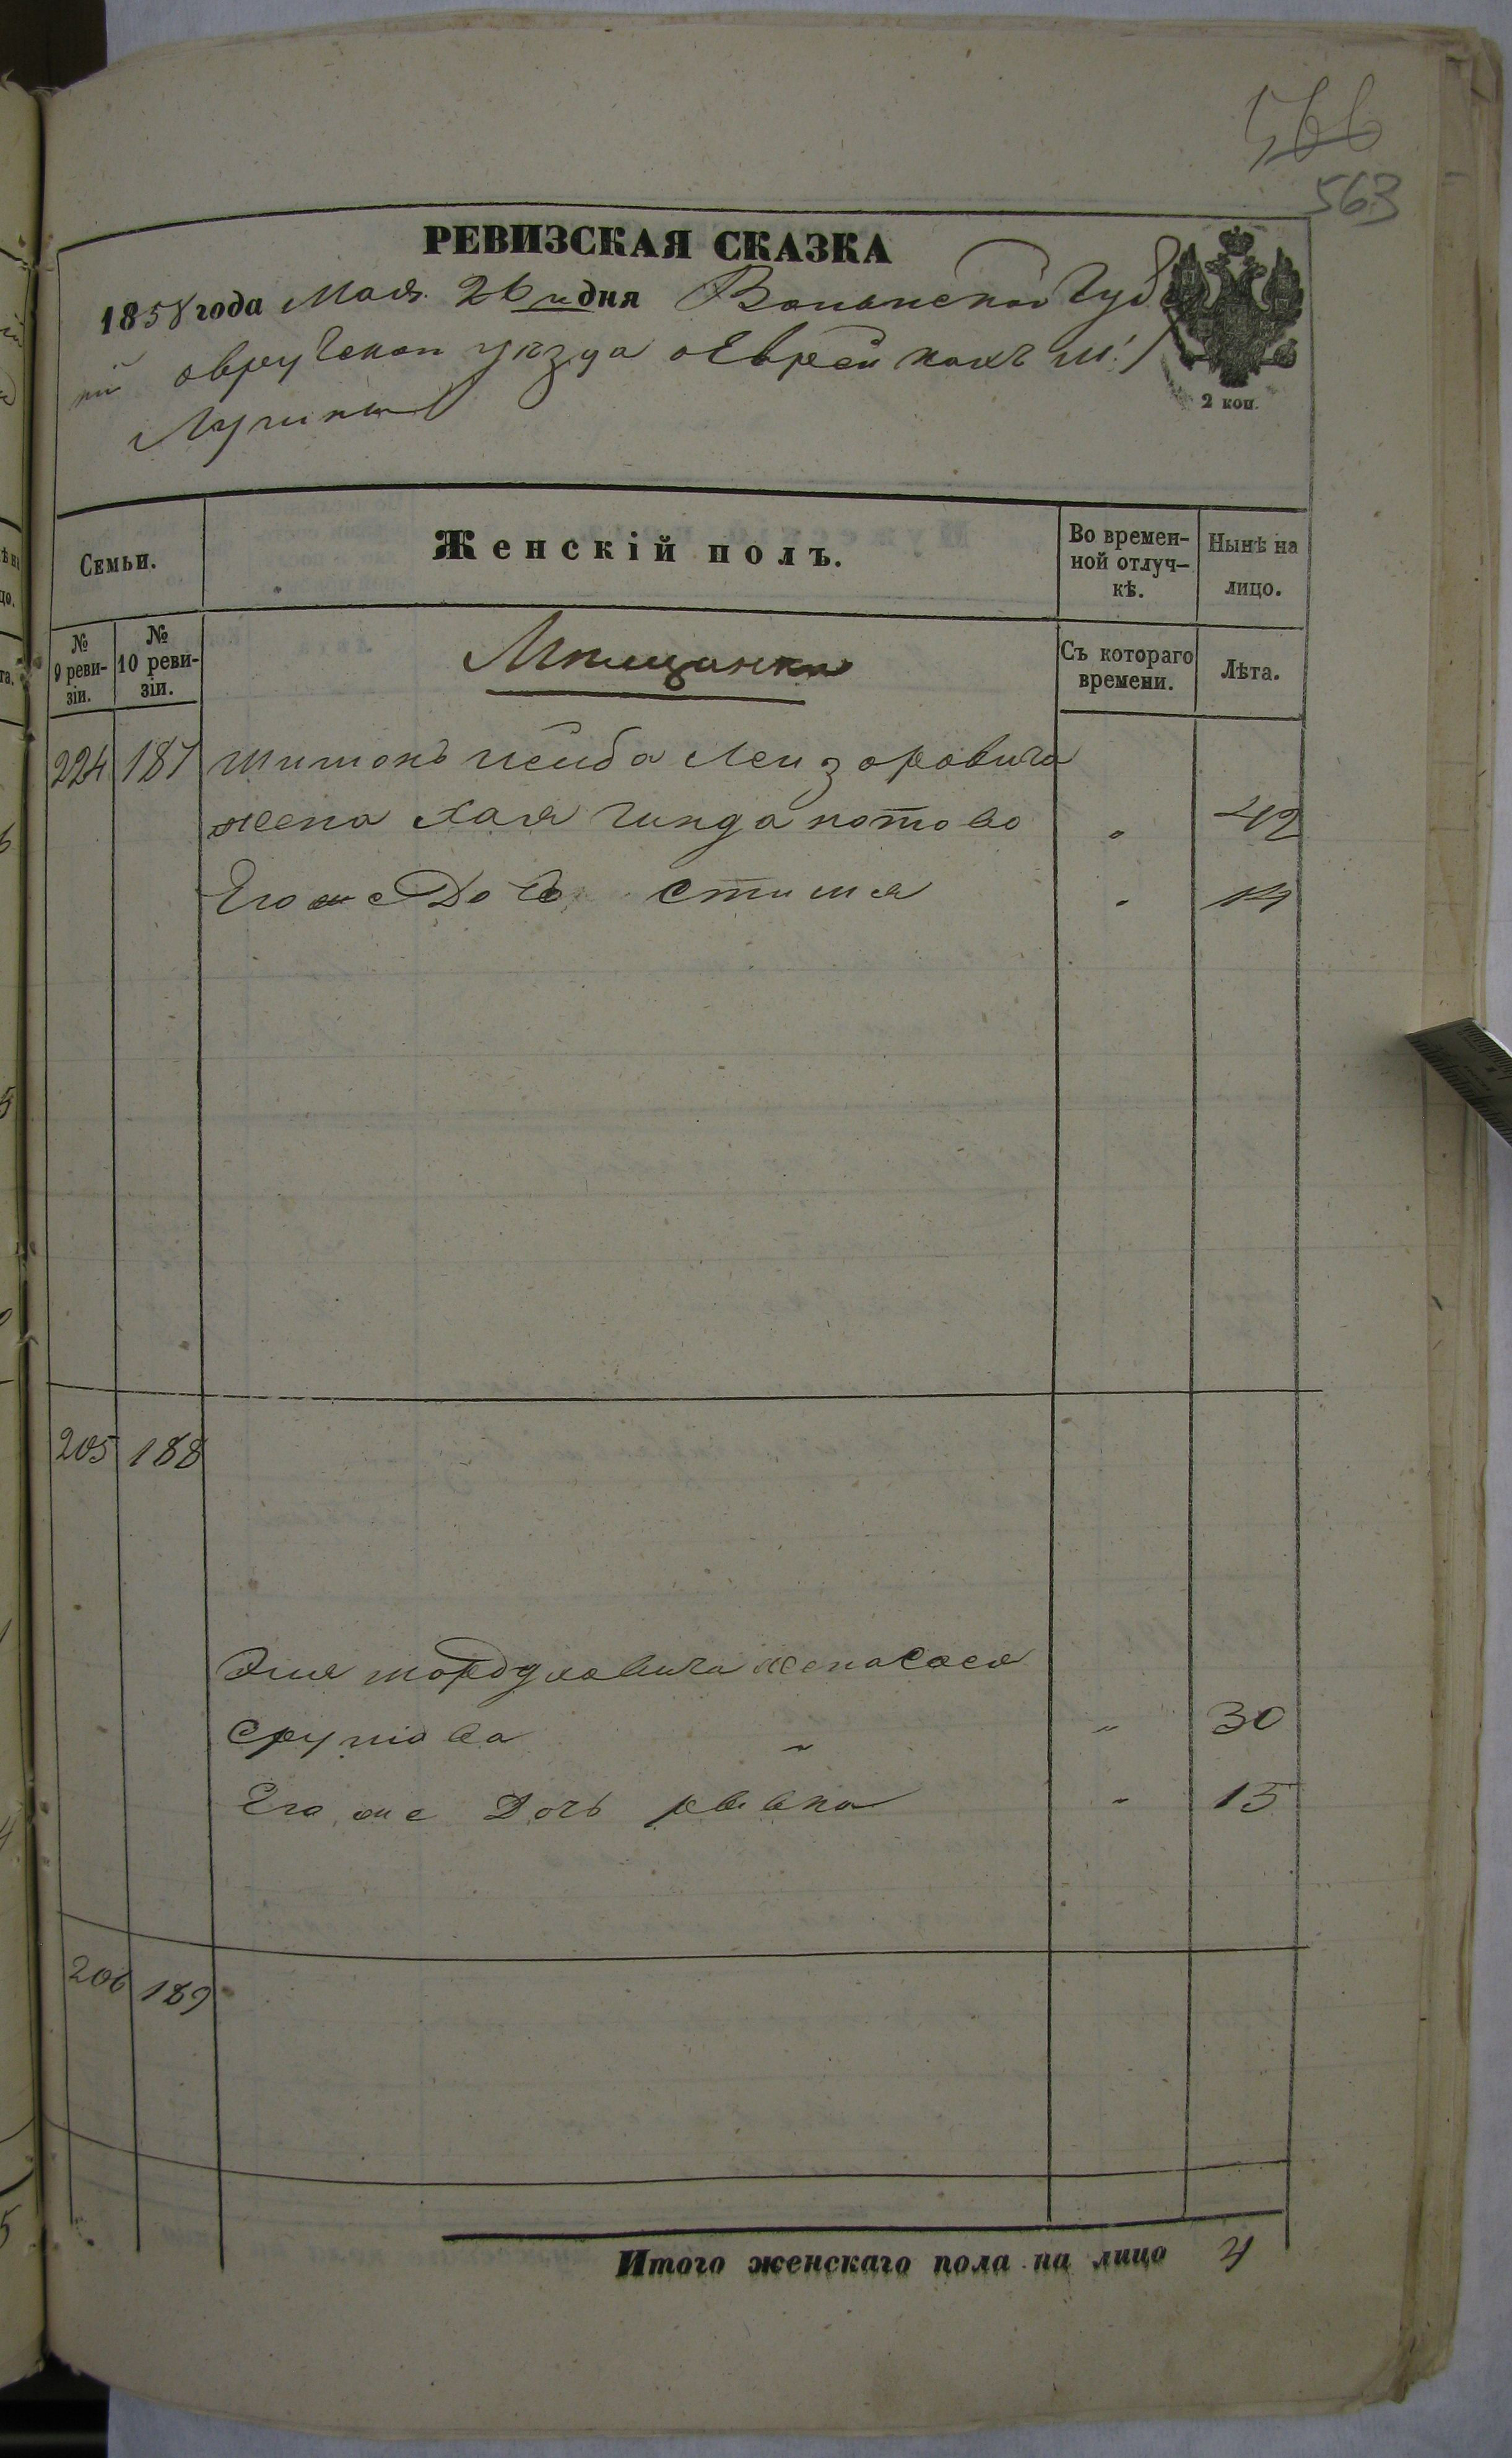 566
563
РЕВИЗСКАЯ СКАЗКА
1858 года Мая 26 дня Волынской Губер
ніи Овручскаго уѣзда о Еврейкахъ М:
Лугинъ
2 коп.
Семьи.
Женскій полъ.
Во времен-
ной отлуч-
кѣ.
Нынѣ на
лицо.
№
9 реви-
зіи.
№
10 реви-
зіи.
Мѣщанки
Съ котораго
времени.
Лѣта.
224 187 Шимонъ Лейба Лейзоровича
жена Хая Гинда 42
Его же Дочь 14
205 188
Эля Мордковича жена Сося
Срулова " " 30
Его же Дочь Ривка " 15
206 189
Итого женскаго пола на лицо 4